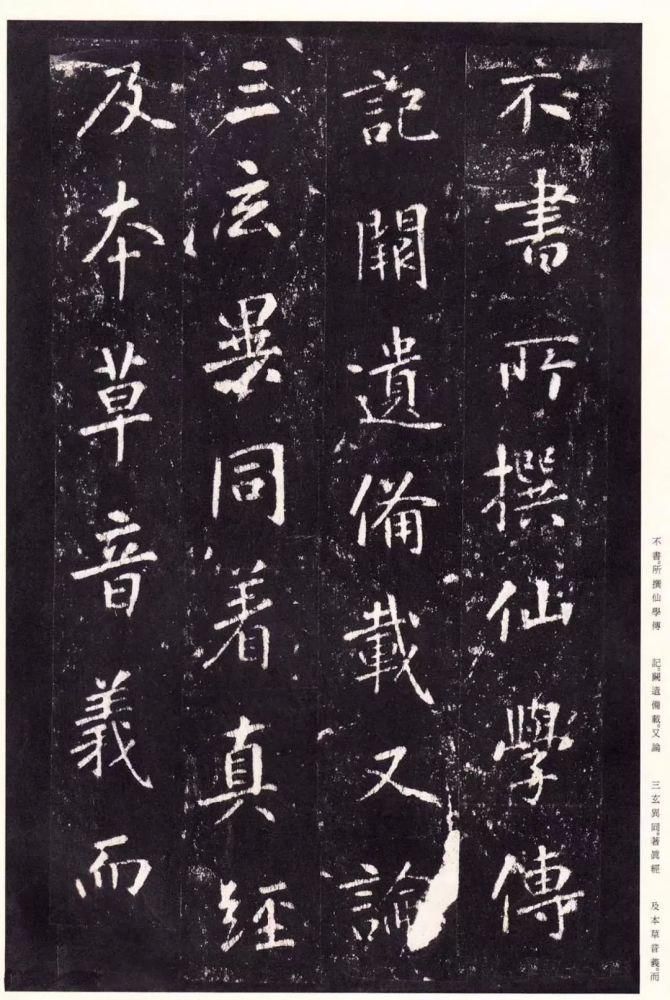 不書所撰仙學傳
記闕遺備載又論
三玄異同著真經
及本草音義而
不書。所撰仙學傳 記。闕遺備載。又論 三玄異同。著眞經 及本草音義。而